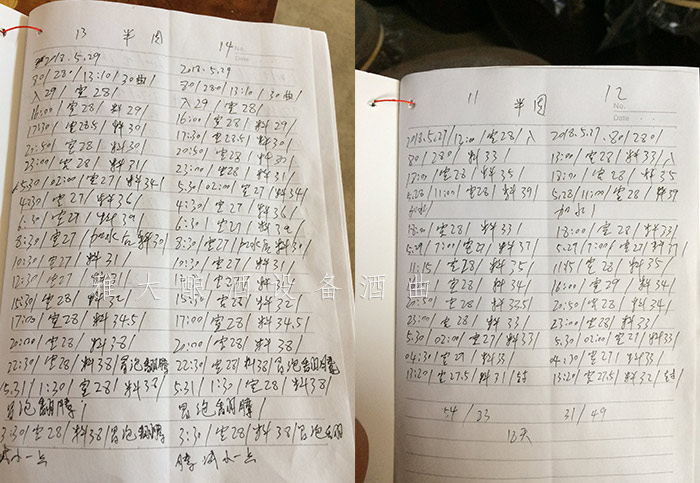 13 半固 14
No.
Date
2018.5.29
30/280/13:10/30曲/
入29/室28/
16:00/室28/料29/
17:30/室28.5/料30/
20:50/室28/料30/
23:00/室28/料31/
5.30/02:00/室27/料34/
4:30/室27/料36/
6:30/室27/料39/
8:30/室27/加水后料30/
10:30/室27/料31/
12:30/室27/料31/
15:30/室28/料32/
17:00/室28/料34.5/
20:00/室28/料38/
22:30/室28/料38/冒泡翻腾/
5.31/1:30/室28/料38/
冒泡翻腾/
3:30/室28/料38/冒泡翻腾
减小一点
2018.5.29
30/280/13:10/30曲/
入29/室28/
16:00/室28/料29/
17:30/室28.5/料30/
20:50/室28/料30/
23:00/室28/料31/
5.30/02:00/室27/料34/
4:30/室27/料36/
6:30/室27/料39/
8:30/室27/加水后料30/
10:30/室27/料31/
室27/料31/
15:30/室28/料32/
17:00/室28/料34.5/
20:00/室28/料38/
22:30/室28/料38/冒泡翻腾
5.31/1:30/室28/料38/
冒泡翻腾/
3:30/室28/料38/冒泡翻
腾减小一点
11 半固 12
No.
Date
2018.5.27/12:00/室28/入
30/280/料33/
18:00/室28/料35/
5.28/11:00/室28/料39/
加水/
18:00/室28/料33/
5.29/7:00/室27/料37/
11:15/室28/料35/
室28/料34/
20:50/室28/料33.5/
23:00/室28/料33/
5.30/02:00/室27/料33/
04:30/室27/料33/
13:20/室27.5/料31/封
2018.5.27.30/280/
13:00/室28/料33/入
18:00/室28/料35/
5.28/11:00/室28/料39
加水/
18:00/室28/料33/
5.29/7:00/室27/料37/
11:15/室28/料35/
16:00/室29/料34/
20:50/室28/料34/
23:00/室28/料33/
5.30/02:00/室27/料33/
04:30/室27/料33/
13:20/室27.5/料32/封/
54/33 31/49
12天
雅大酿酒设备酒曲